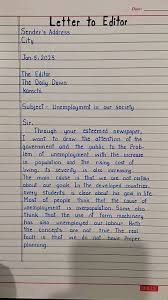 Date:
Letter to Editor
Sender's Address
City
Jan 5, 2023
The Editor
The Daily Dawn
Karachi
Subject:- Unemployment in our Society
Sir,
Through your esteemed newspaper,
I want to draw the attention of the
government and the public to the Problem
of unemployment with the increase
in population and the rising cost of
living. Its severity is also increasing.
The main cause is that we are not certain
about our goals. In the developed countries,
every student is clear about his goal in life.
Most of people think that the cause of
unemployment is overpopulation. Some also
think that the use of form machinery
has also unemployed our labour. Both
the concepts are not true. The real
fault is that we do not have Proper
planning.